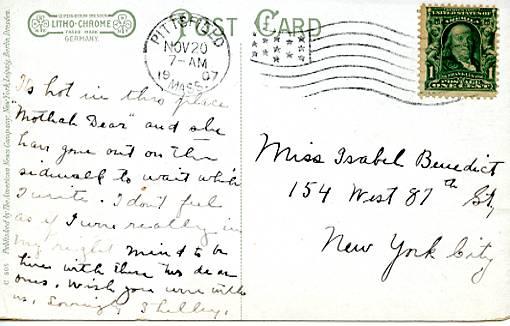 LITHO-CHROME
TRADE MARK
GERMANY.
POST CARD
PITTSFORD
NOV 20
7-AM
1907
MASS.
UNITED STATES OF
1
ONE CENT
Published by The American News Company, New York, Leipzig, Berlin, Dresden.
Its hot in this place
"Mothah Dear" and she
has gone out on the
sidewalk to wait while
I write. I don't feel
as if I were really in
my right mind to be
here with these two dear
ones. Wish you were with
us. Lovingly Shelley.
Miss Isabel Benedict
154 West 87th St,
New York City